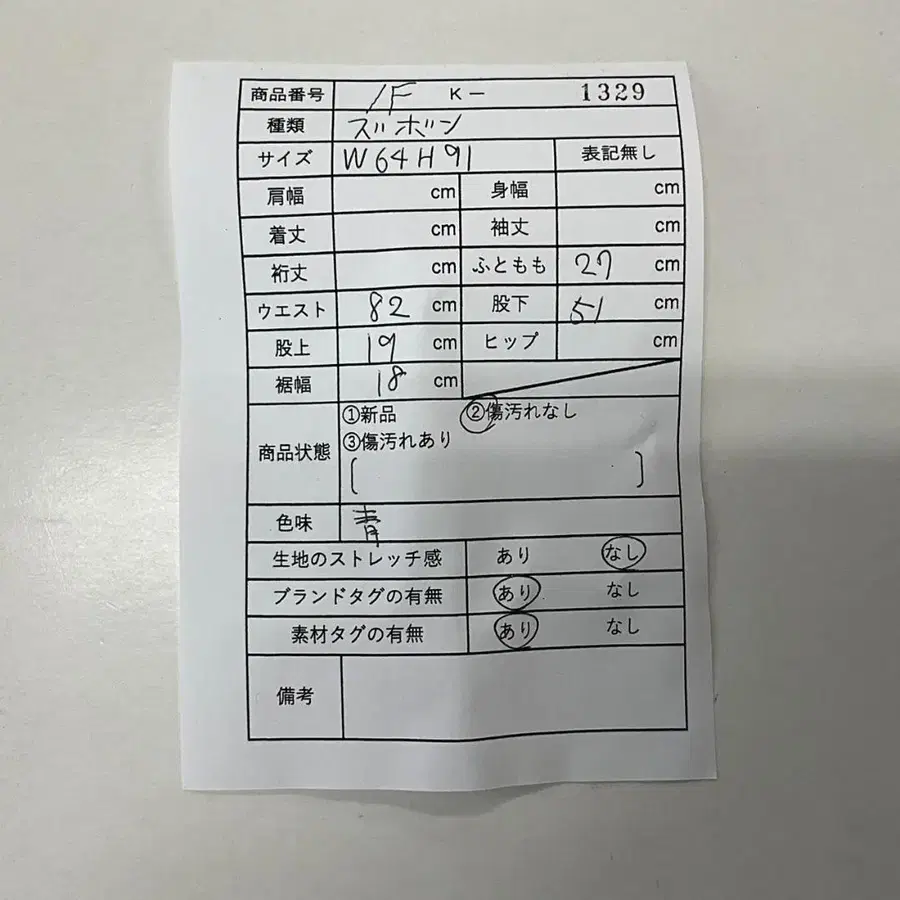 商品番号 1F K- 1329
種類 ズボン
サイズ W64H91 表記無し
肩幅 cm 身幅 cm
着丈 cm 袖丈 cm
裄丈 cm ふともも 27 cm
ウエスト 82 cm 股下 51 cm
股上 19 cm ヒップ cm
裾幅 18 cm
商品状態 ①新品 ②傷汚れなし
③傷汚れあり
[ ]
色味 青
生地のストレッチ感 あり なし
ブランドタグの有無 あり なし
素材タグの有無 あり なし
備考